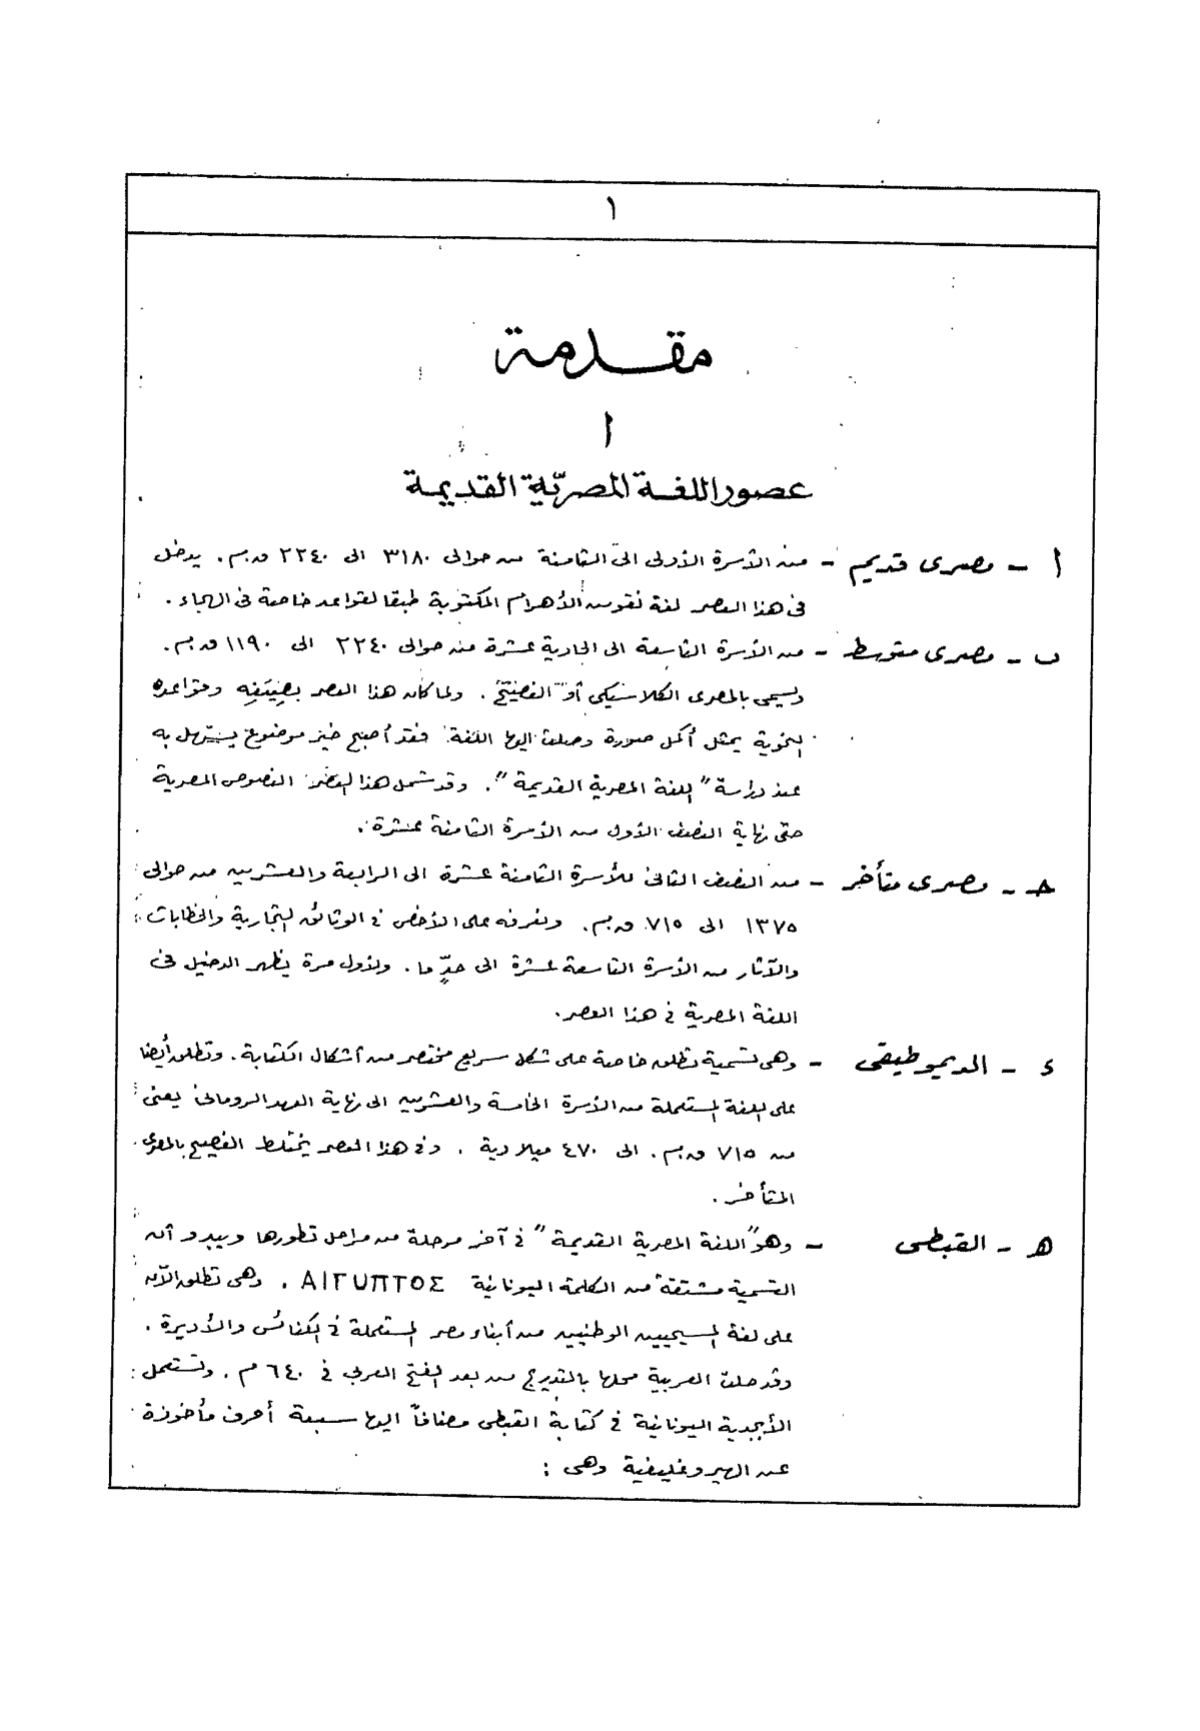 ١
مقدمة
١
عصور اللغة المصريّة القديمة
أ - مصرى قديم - من الأسرة الأولى الى الثامنة من حوالى ٣١٨٠ الى ٢٢٤٠ ق.م. يدخل
فى هذا العصر لغة نقوش الأهرام المكتوبة طبقا لقواعد خاصة فى الهجاء .
ب - مصرى متوسط - من الأسرة التاسعة الى الحادية عشرة من حوالى ٢٢٤٠ الى ١١٩٠ ق.م.
ويسمى بالمصرى الكلاسيكى أو الفصيح . ولما كان هذا العصر بصيغه وقواعده
النحوية يمثل أكمل صورة وصلت اليها اللغة فقد أصبح خير موضوع يستهل به
عند دراسة "اللغة المصرية القديمة" . وقد شمل هذا العصر النصوص المصرية
حتى نهاية النصف الأول من الأسرة الثامنة عشرة .
جـ - مصرى متأخر - من النصف الثانى للأسرة الثامنة عشرة الى الرابعة والعشرين من حوالى
١٣٧٥ الى ٧١٥ ق.م. ونعرفه على الأخص فى الوثائق التجارية والخطابات
والآثار من الأسرة التاسعة عشرة الى حدٍّ ما . ولأول مرة يظهر الدخيل فى
اللغة المصرية فى هذا العصر.
ء - الديموطيقى - وهى تسمية تطلق خاصة على شكل سريع مختصر من أشكال الكتابة . وتطلق أيضا
على اللغة المستعملة من الأسرة الخامسة والعشرين الى نهاية العهد الرومانى يعنى
من ٧١٥ ق.م. الى ٤٧٠ ميلادية . وفى هذا العصر يختلط الفصيح بالمصرى
المتأخر .
هـ - القبطى - وهو "اللغة المصرية القديمة" فى آخر مرحلة من مراحل تطورها ويبدو أن
التسمية مشتقة من الكلمة اليونانية ΑΙΓΥΠΤΟΣ . وهى تطلق الآن
على لغة المسيحيين الوطنيين من أبناء مصر المستعملة فى الكنائس والأديرة .
وقد حلت العربية محلها بالتدريج من بعد الفتح العربى فى ٦٤٠ م . وتستعمل
الأبجدية اليونانية فى كتابة القبطى مضافاً اليها سبعة أحرف مأخوذة
عن الهيروغليفية وهى :